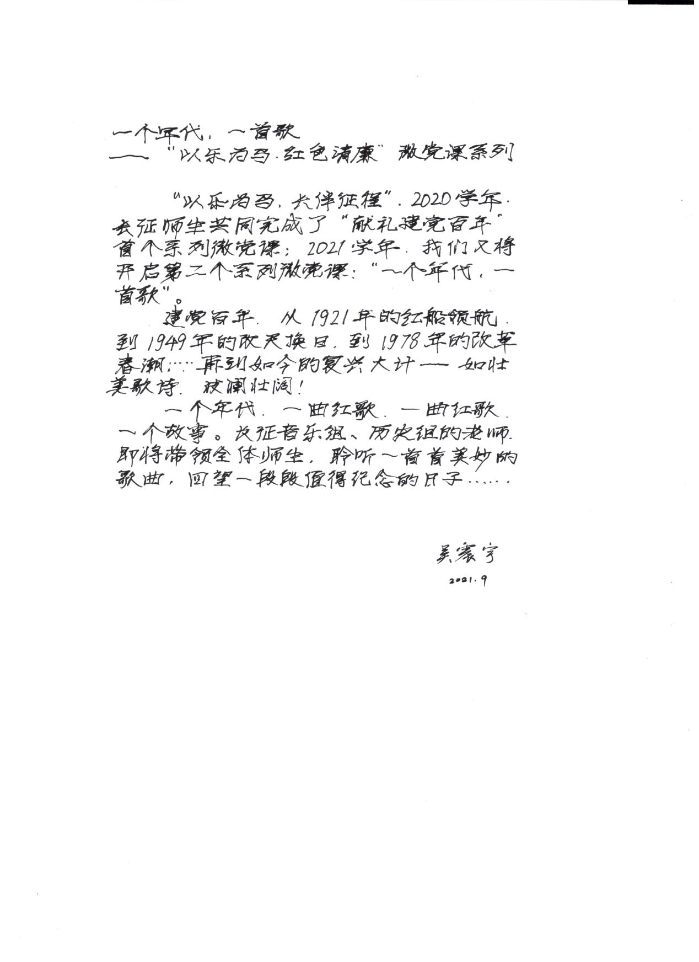 一个年代，一首歌
——“以乐为马·红色清廉”微党课系列
“以乐为马，长伴征程”，2020学年，
长征师生共同完成了“献礼建党百年”
首个系列微党课；2021学年，我们又将
开启第二个系列微党课：“一个年代，一
首歌”。
建党百年，从1921年的红船领航，
到1949年的改天换日，到1978年的改革
春潮……再到如今的复兴大计——如壮
美歌诗，波澜壮阔！
一个年代，一曲红歌，一曲红歌，
一个故事。长征音乐组、历史组的老师，
即将带领全体师生，聆听一首首美妙的
歌曲，回望一段段值得纪念的日子……
吴寰宇
2021.9